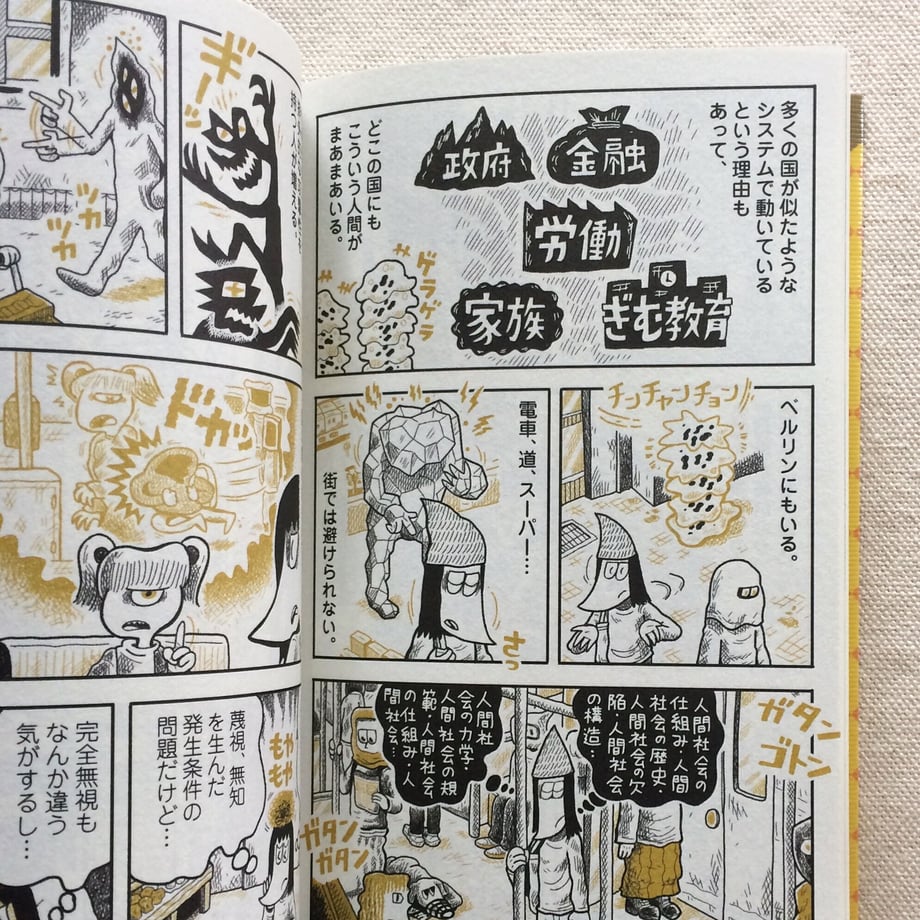 多くの国が似たような
システムで動いている
という理由も
あって、
金融
政府
労働
ぎむ教育
家族
どこの国にも
こういう人間が
まあまあいる。
ゲラゲラ
ベルリンにもいる。
チンチャンチョン
電車、道、スーパー…
街では避けられない。
さっ
ガタン
ゴトン
人間社会の
仕組み・人間
社会の歴史・
人間社会の欠
陥・人間社会
の構造・
人間社
会の力学・
人間社会の規
範・人間社会
の仕組み・人
間社会…
ガタン
ガタン
ギーッ
ツカ
ツカ
ドカッ
蔑視、無知
を生んだ
発生条件の
問題だけど…
もや
もや
完全無視も
なんか違う
気がするし…